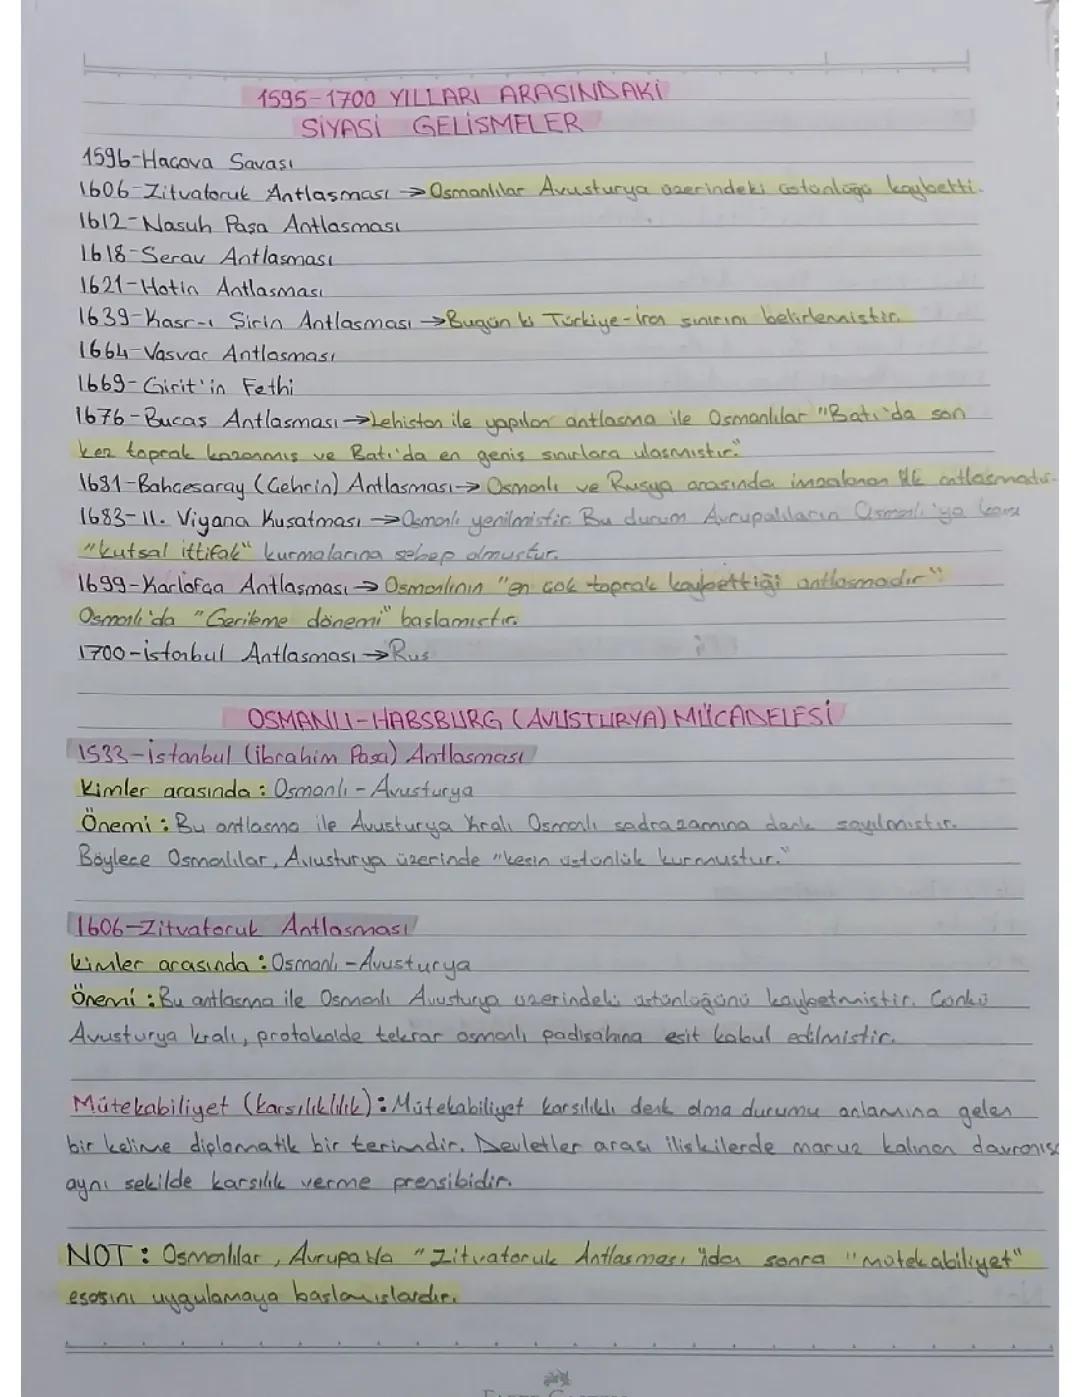 1595-1700 YILLARI ARASINDAKİ
SİYASİ GELİSMELER
1596-Hacova Savası
1606-Zitvatoruk Antlasması → Osmanlılar Avusturya üzerindeki üstünlüğü kaybetti.
1612-Nasuh Pasa Antlasması
1618-Serav Antlasması
1621-Hotin Antlasması
1639-Kasr-ı Sirin Antlasması → Bugün ki Türkiye-İran sınırını belirlemistir.
1664-Vasvar Antlasması
1669-Girit'in Fethi
1676-Bucas Antlasması → Lehistan ile yapılan antlasma ile Osmanlılar "Batı'da son
kez toprak kazanmıs ve Batı'da en genis sınırlara ulasmıstır."
1681-Bahcesaray (Cehrin) Antlasması → Osmanlı ve Rusya arasında imzalanan ilk antlasmadır.
1683-II. Viyana Kusatması → Osmanlı yenilmistir. Bu durum Avrupalıların Osmanlı'ya karsı
"kutsal ittifak" kurmalarına sebep olmustur.
1699-Karlofca Antlasması → Osmanlının "en cok toprak kaybettiği antlasmadır"
Osmanlı'da "Gerileme dönemi" baslamıstır.
1700-İstanbul Antlasması → Rus
OSMANLI-HABSBURG (AVUSTURYA) MÜCADELESİ
1533-İstanbul (İbrahim Pasa) Antlasması
Kimler arasında : Osmanlı - Avusturya
Önemi : Bu antlasma ile Avusturya Kralı Osmanlı sadrazamına denk sayılmıstır.
Böylece Osmanlılar, Avusturya üzerinde "kesin üstünlük kurmustur."
1606-Zitvatoruk Antlasması
Kimler arasında : Osmanlı - Avusturya
Önemi : Bu antlasma ile Osmanlı Avusturya üzerindeki üstünlüğünü kaybetmistir. Cünkü
Avusturya kralı, protokolde tekrar osmanlı padisahına esit kabul edilmistir.
Mütekabiliyet (Karsılıklılık) : Mütekabiliyet karsılıklı denk olma durumu anlamına gelen
bir kelime diplomatik bir terimdir. Devletler arası iliskilerde maruz kalınan davranısa
aynı sekilde karsılık verme prensibidir.
NOT : Osmanlılar, Avrupa'da "Zitvatoruk Antlasması"ndan sonra "mütekabiliyet"
esasını uygulamaya baslamıslardır.